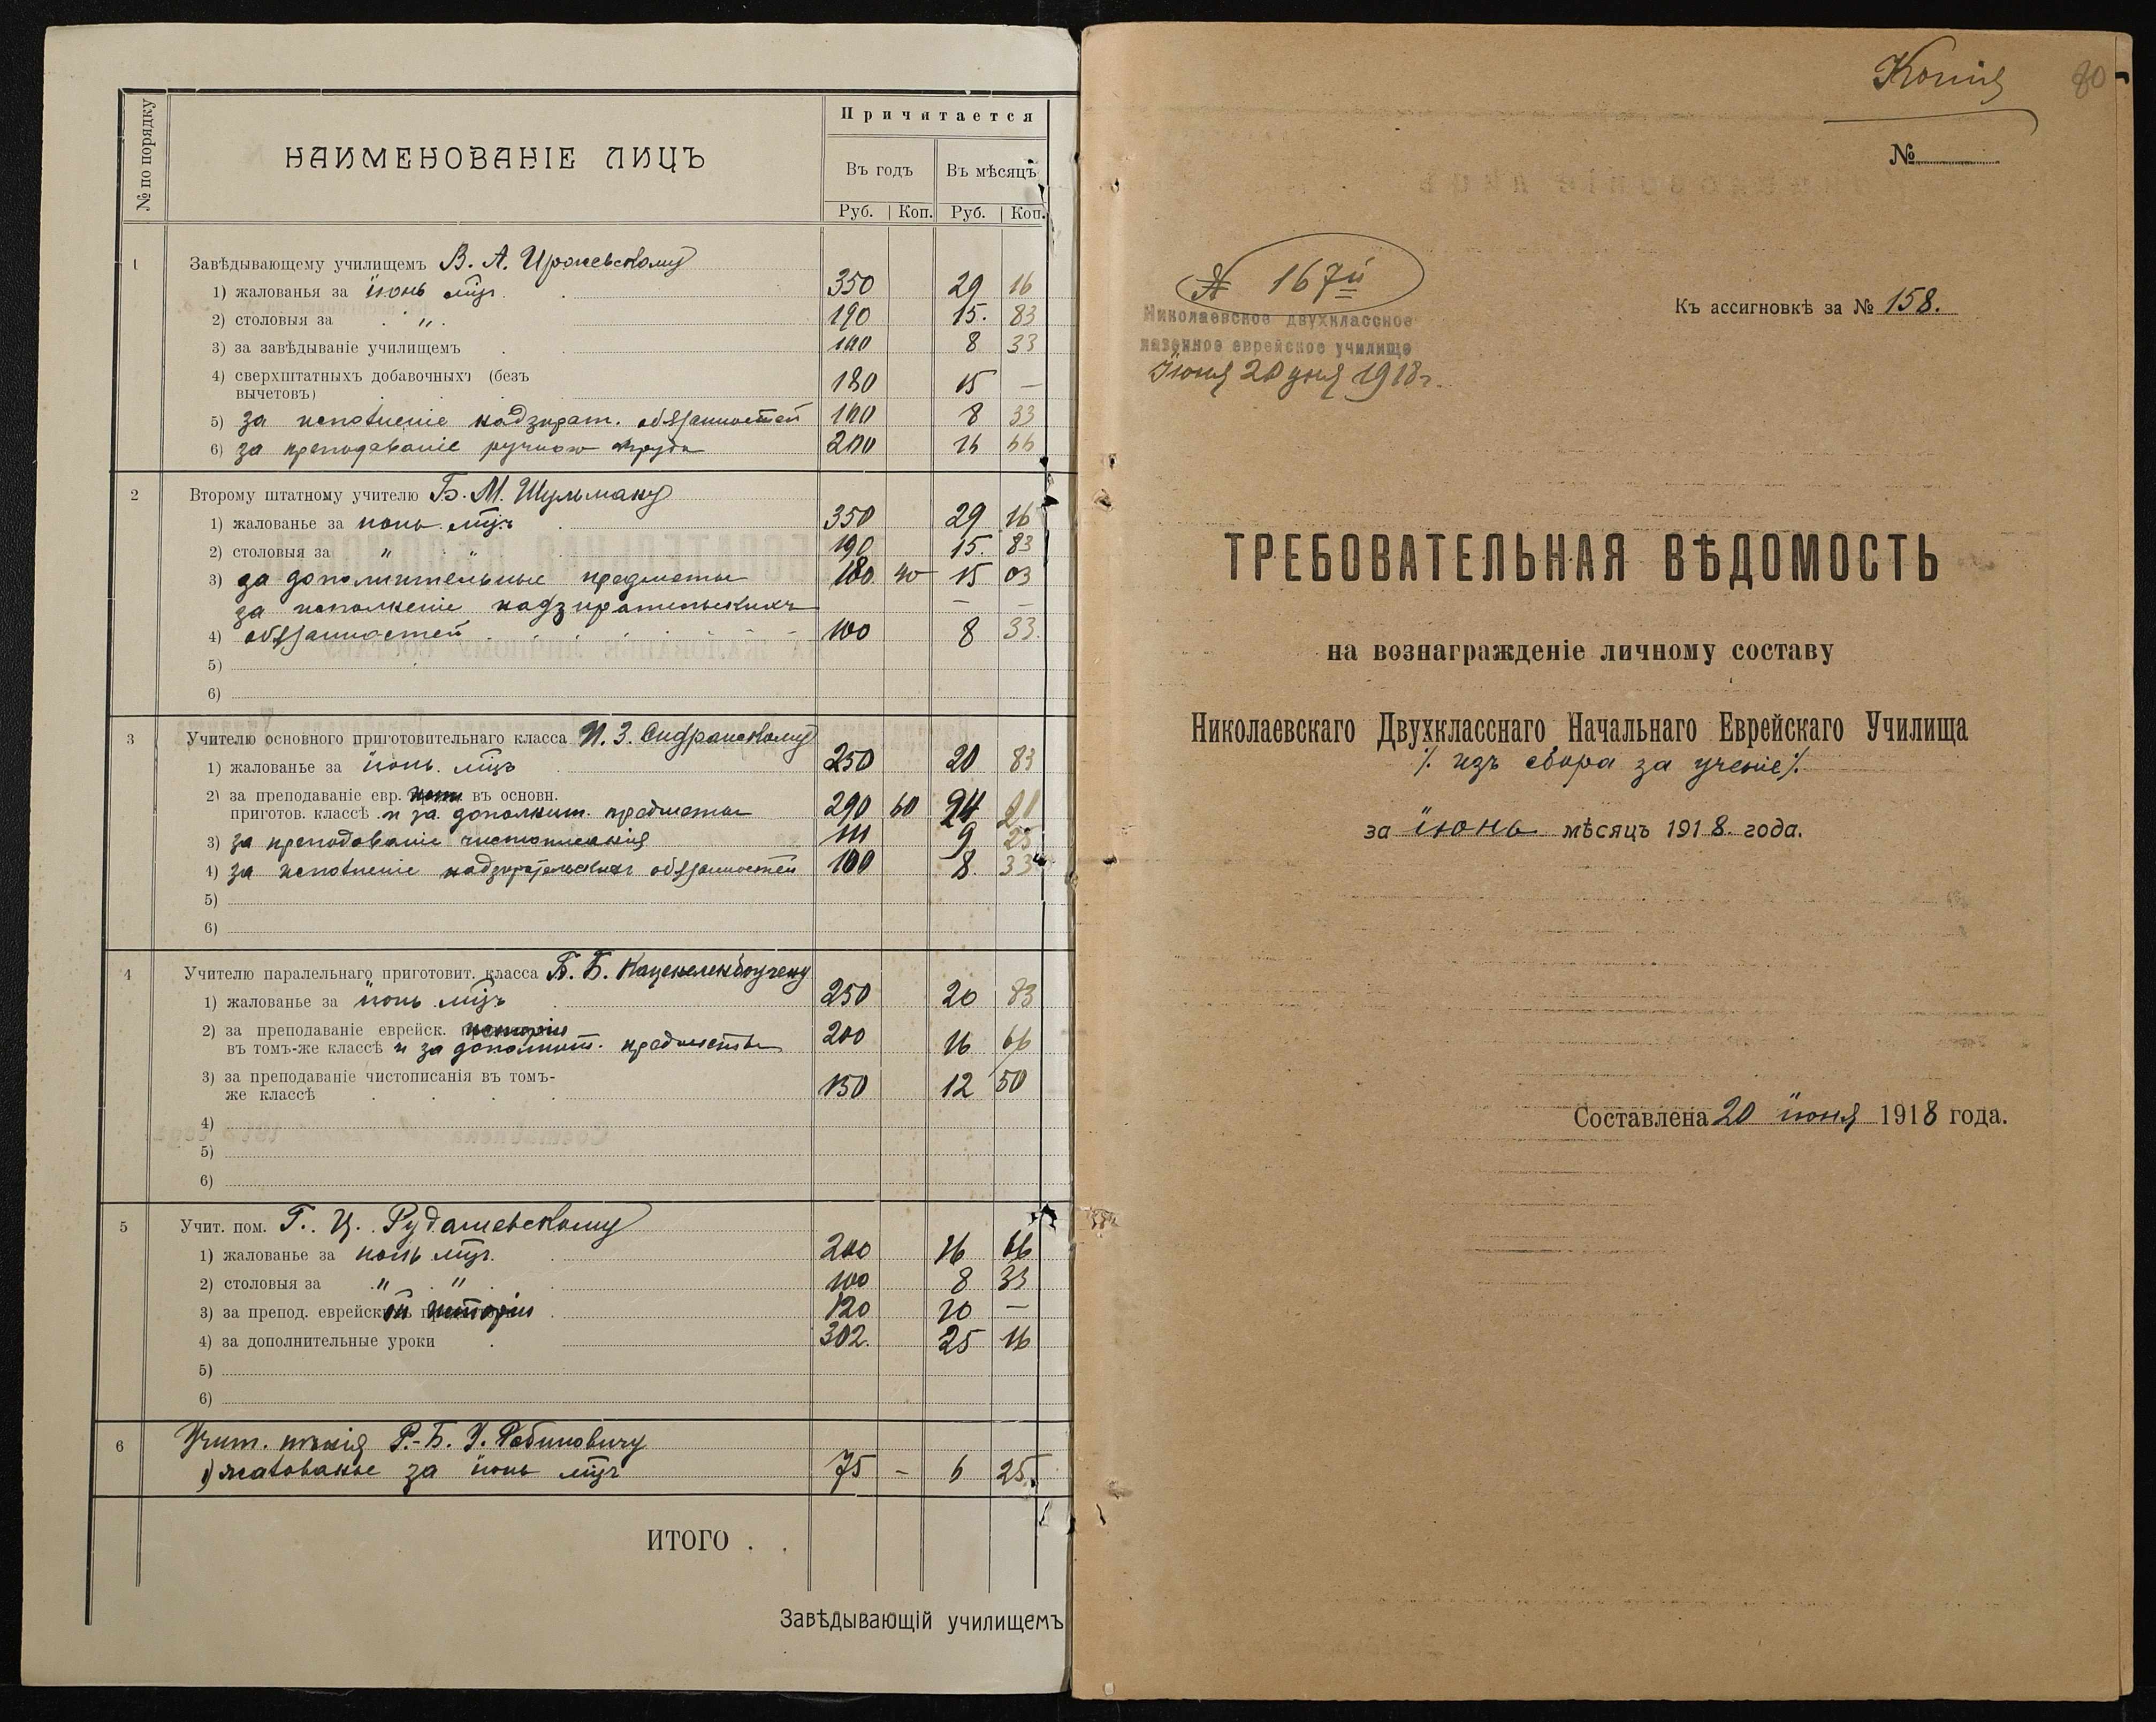 № по порядку
НАИМЕНОВАНІЕ ЛИЦЪ
Причитается
Въ годъ Въ мѣсяцъ
Руб. Коп. Руб. Коп.
1 Завѣдывающему училищемъ В. А.
1) жалованья за іюнь мцъ. 350 29 16
2) столовыя за " 190 15. 83
3) за завѣдываніе училищемъ 100 8 33
4) сверхштатныхъ добавочныхъ (безъ
вычетовъ) 180 15 —
5) за исполненіе надзират. обязанностей 100 8 33
6) за преподаваніе ручного труда 200 16 66
2 Второму штатному учителю Б. М. Шульману
1) жалованье за іюнь мцъ 350 29 16
2) столовыя за " " 190 15. 83
3) за дополнительные предметы 180 40 15 03
за исполненіе надзирательскихъ — —
4) обязанностей 100 8 33.
5)
6)
3 Учителю основного приготовительнаго класса И. З. Сидранскому
1) жалованье за іюнь мцъ 250 20 83
2) за преподаваніе евр. въ основн.
приготов. классѣ и за дополнит. предметы 290 60 24 21
3) за преподованіе чистописанія 111 9 25
4) за исполненіе надзирательскихъ обязанностей 100 8. 33
5)
6)
4 Учителю паралельнаго приготовит. класса Б. Б. Каценеленбогену
1) жалованье за іюнь мцъ 250 20 83
2) за преподаваніе еврейск. исторіи
въ томъ-же классѣ и за дополнит. предметы 200 16 66
3) за преподаваніе чистописанія въ томъ-
же классѣ 150 12 50
4)
5)
6)
5 Учит. пом. Г. Ц. Рудашевскому
1) жалованье за іюнь мцъ. 200 16 66
2) столовыя за " " 100 8 33
3) за препод. еврейской исторіи 120 10 —
4) за дополнительные уроки 302. 25 16
5)
6)
6 Учит. пѣнія Р.-Б. У. Рабиновичу
1) жалованье за іюнь мцъ 75 - 6 25.
ИТОГО . .
Завѣдывающій училищемъ
Копія 80
№
№ 167й
Николаевское двухклассное
казенное еврейское училище
Іюня 20 дня 1918 г.
Къ ассигновкѣ за № 158.
ТРЕБОВАТЕЛЬНАЯ ВѢДОМОСТЬ
на вознагражденіе личному составу
Николаевскаго Двухкласснаго Начальнаго Еврейскаго Училища
/. изъ сбора за ученіе /.
за іюнь мѣсяцъ 1918. года.
Составлена 20 іюня 1918 года.